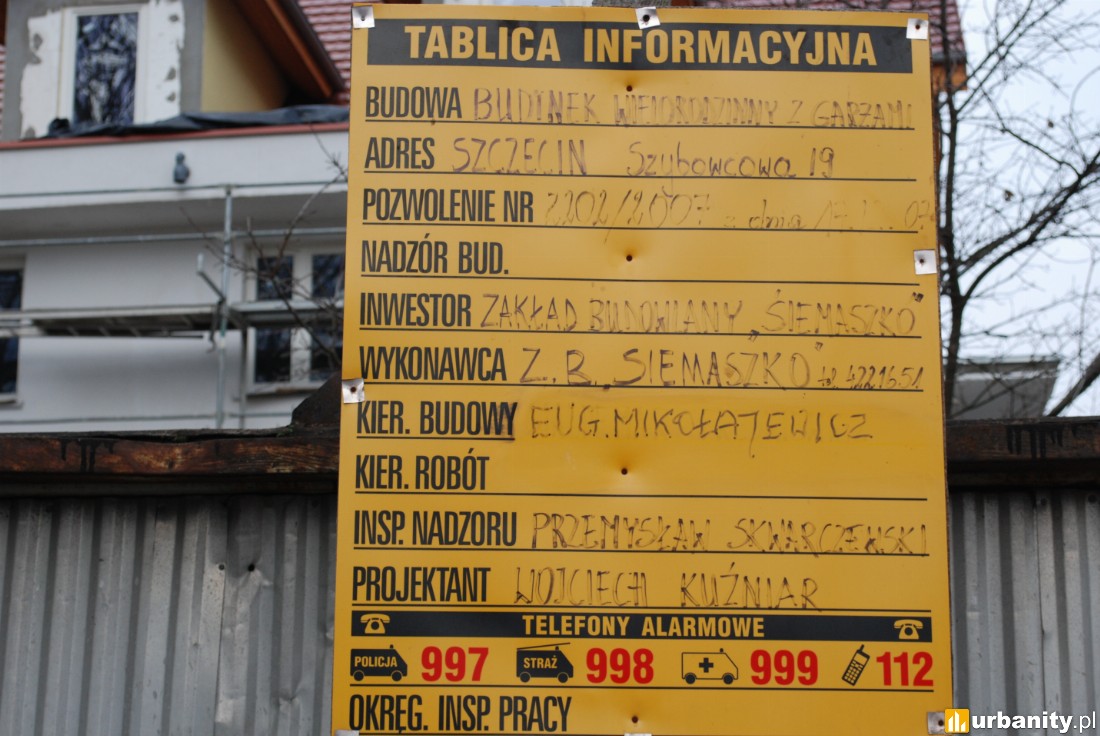 TABLICA INFORMACYJNA
BUDOWA BUDYNEK WIELORODZINNY Z GARZAMI
ADRES SZCZECIN Szybowcowa 19
POZWOLENIE NR 2202/2007 z dnia 07
NADZÓR BUD.
INWESTOR ZAKŁAD BUDOWLANY „SIEMASZKO"
WYKONAWCA Z.B. „SIEMASZKO" tel 4221651
KIER. BUDOWY EUG. MIKOŁAJEWICZ
KIER. ROBÓT
INSP. NADZORU PRZEMYSŁAW SKWARCZEWSKI
PROJEKTANT WOJCIECH KUŹNIAR
TELEFONY ALARMOWE
POLICJA 997 STRAŻ 998 999 112
OKRĘG. INSP. PRACY
urbanity.pl